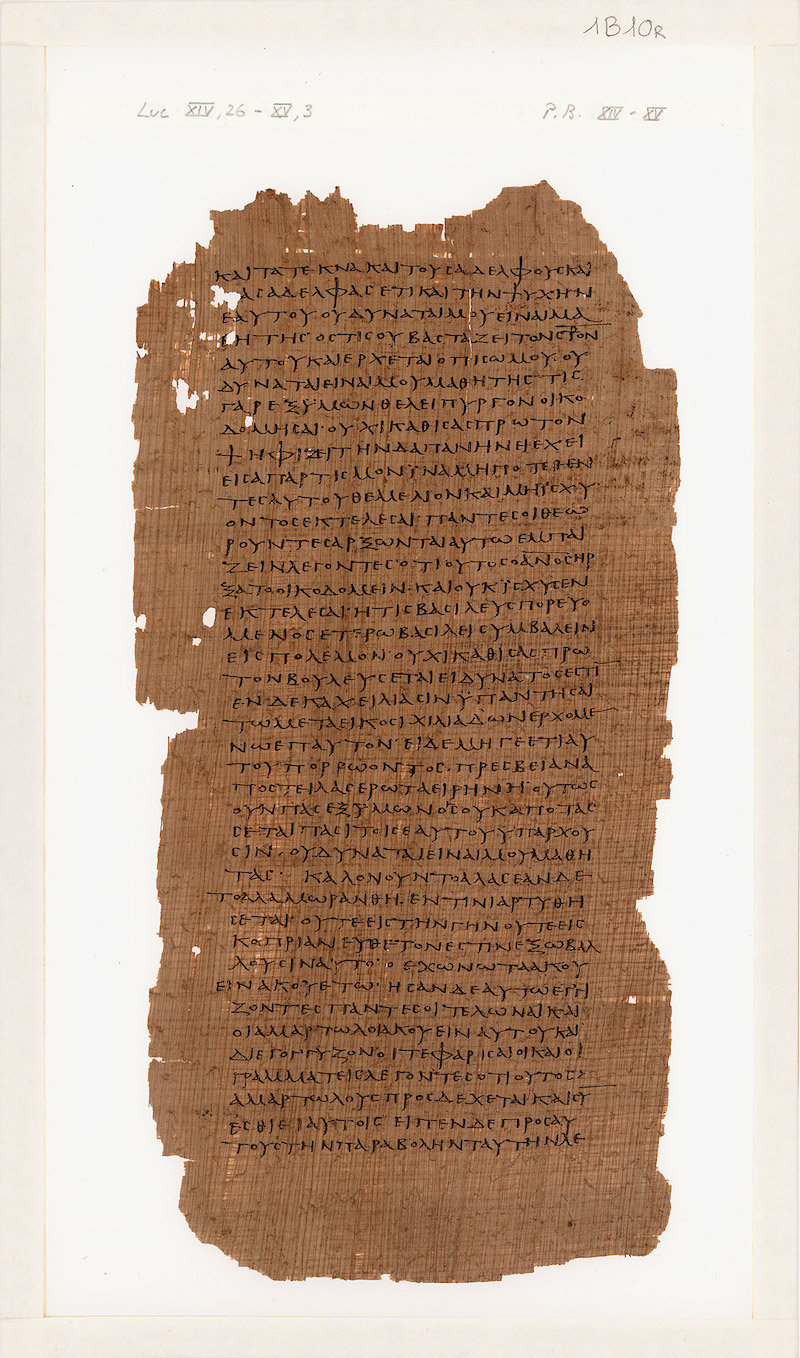 1B10R
Luc XIV, 26 - XV, 3
P.B. XIV - XV
ΚΑΙΤΑΤΕΚΝΑΚΑΙΤΟΥΣΑΔΕΛΦΟΥΣΚΑΙ
ΑΣΑΔΕΛΦΑΣΕΤΙΚΑΙΤΗΝΨΥΧΗΝ
ΕΑΥΤΟΥ·ΟΥΔΥΝΑΤΑΙΜΟΥΕΙΝΑΙΜΑ
ΘΗΤΗΣ·ΟΣΤΙΣΟΥΒΑΣΤΑΖΕΙΤΟΝΣΡΟΝ
ΑΥΤΟΥΚΑΙΕΡΧΕΤΑΙΟΠΙΣΩΜΟΥ·ΟΥ
ΔΥΝΑΤΑΙΕΙΝΑΙΜΟΥΜΑΘΗΤΗΣ·ΤΙΣ
ΓΑΡΕΞΥΜΩΝΘΕΛΕΙΠΥΡΓΟΝΟΙΚΟ
ΔΟΜΗΣΑΙ·ΟΥΧΙΚΑΘΙΣΑΣΠΡΩΤΟΝ
ΨΗΦΙΖΕΙΤΗΝΔΑΠΑΝΗΝΕΙΕΧΕΙ
ΕΙΣΑΠΑΡΤΙΣΜΟΝΙΝΑΜΗΠΟΤΕΘΕΝ
ΤΕΣΑΥΤΟΥΘΕΜΕΛΙΟΝΚΑΙΜΗΙΣΧΥ
ΟΝΤΟΣΕΚΤΕΛΕΣΑΙ·ΠΑΝΤΕΣΟΙΘΕΩ
ΡΟΥΝΤΕΣΑΡΞΩΝΤΑΙΑΥΤΩΕΜΠΑΙ
ΖΕΙΝΛΕΓΟΝΤΕΣ·ΟΤΙΟΥΤΟΣΟΑΝΟΣΗΡ
ΞΑΤΟΟΙΚΟΔΟΜΕΙΝ·ΚΑΙΟΥΚΙΣΧΥΣΕΝ
ΕΚΤΕΛΕΣΑΙ·ΗΤΙΣΒΑΣΙΛΕΥΣΠΟΡΕΥΟ
ΜΕΝΟΣΕΤΕΡΩΒΑΣΙΛΕΙΣΥΜΒΑΛΕΙΝ
ΕΙΣΠΟΛΕΜΟΝ·ΟΥΧΙΚΑΘΙΣΑΣΠΡΩ
ΤΟΝΒΟΥΛΕΥΣΕΤΑΙΕΙΔΥΝΑΤΟΣΕΣΤΙ
ΕΝΔΕΚΑΧΕΙΛΙΑΣΙΝΥΠΑΝΤΗΣΑΙ
ΤΩΜΕΤΑΕΙΚΟΣΙΧΙΛΙΑΔΩΝΕΡΧΟΜΕ
ΝΩΕΠΑΥΤΟΝ·ΕΙΔΕΜΗΓΕΕΤΙΑΥ
ΤΟΥΠΟΡΡΩΟΝΤΟΣ·ΠΡΕΣΒΕΙΑΝΑ
ΠΟΣΤΕΙΛΑΣΕΡΩΤΑΕΙΡΗΝΗ·ΟΥΤΩΣ
ΟΥΝΠΑΣΕΞΥΜΩΝΟΣΟΥΚΑΠΟΤΑΣ
ΣΕΤΑΙΠΑΣΙΤΟΙΣΕΑΥΤΟΥΥΠΑΡΧΟΥ
ΣΙΝ·ΟΥΔΥΝΑΤΑΙΕΙΝΑΙΜΟΥΜΑΘΗ
ΤΑΣ· ΚΑΛΟΝΟΥΝΤΟΑΛΑΣΕΑΝΔΕ
ΤΟΑΛΑΜΩΡΑΝΘΗ·ΕΝΤΙΝΙΑΡΤΥΘΗ
ΣΕΤΑΙ·ΟΥΤΕΕΙΣΤΗΝΓΗΝΟΥΤΕΕΙΣ
ΚΟΠΡΙΑΝΕΥΘΕΤΟΝΕΣΤΙΝΕΞΩΒΑΛ
ΛΟΥΣΙΝΑΥΤΟ·ΟΕΧΩΝΩΤΑΑΚΟΥ
ΕΙΝΑΚΟΥΕΤΩ·ΗΣΑΝΔΕΑΥΤΩΕΓΓΙ
ΖΟΝΤΕΣΠΑΝΤΕΣΟΙΤΕΛΩΝΑΙΚΑΙ
ΟΙΑΜΑΡΤΩΛΟΙΑΚΟΥΕΙΝΑΥΤΟΥΚΑΙ
ΔΙΕΓΟΓΓΥΖΟΝΟΙΤΕΦΑΡΙΣΑΙΟΙΚΑΙΟΙ
ΓΡΑΜΜΑΤΕΙΣΛΕΓΟΝΤΕΣΟΤΙΟΥΤΟΣ
ΑΜΑΡΤΩΛΟΥΣΠΡΟΣΔΕΧΕΤΑΙΚΑΙΣΥ
ΕΣΘΙΕΙΑΥΤΟΙΣ ΕΙΠΕΝΔΕΠΡΟΣΑΥ
ΤΟΥΣΤΗΝΠΑΡΑΒΟΛΗΝΤΑΥΤΗΝΛΕ